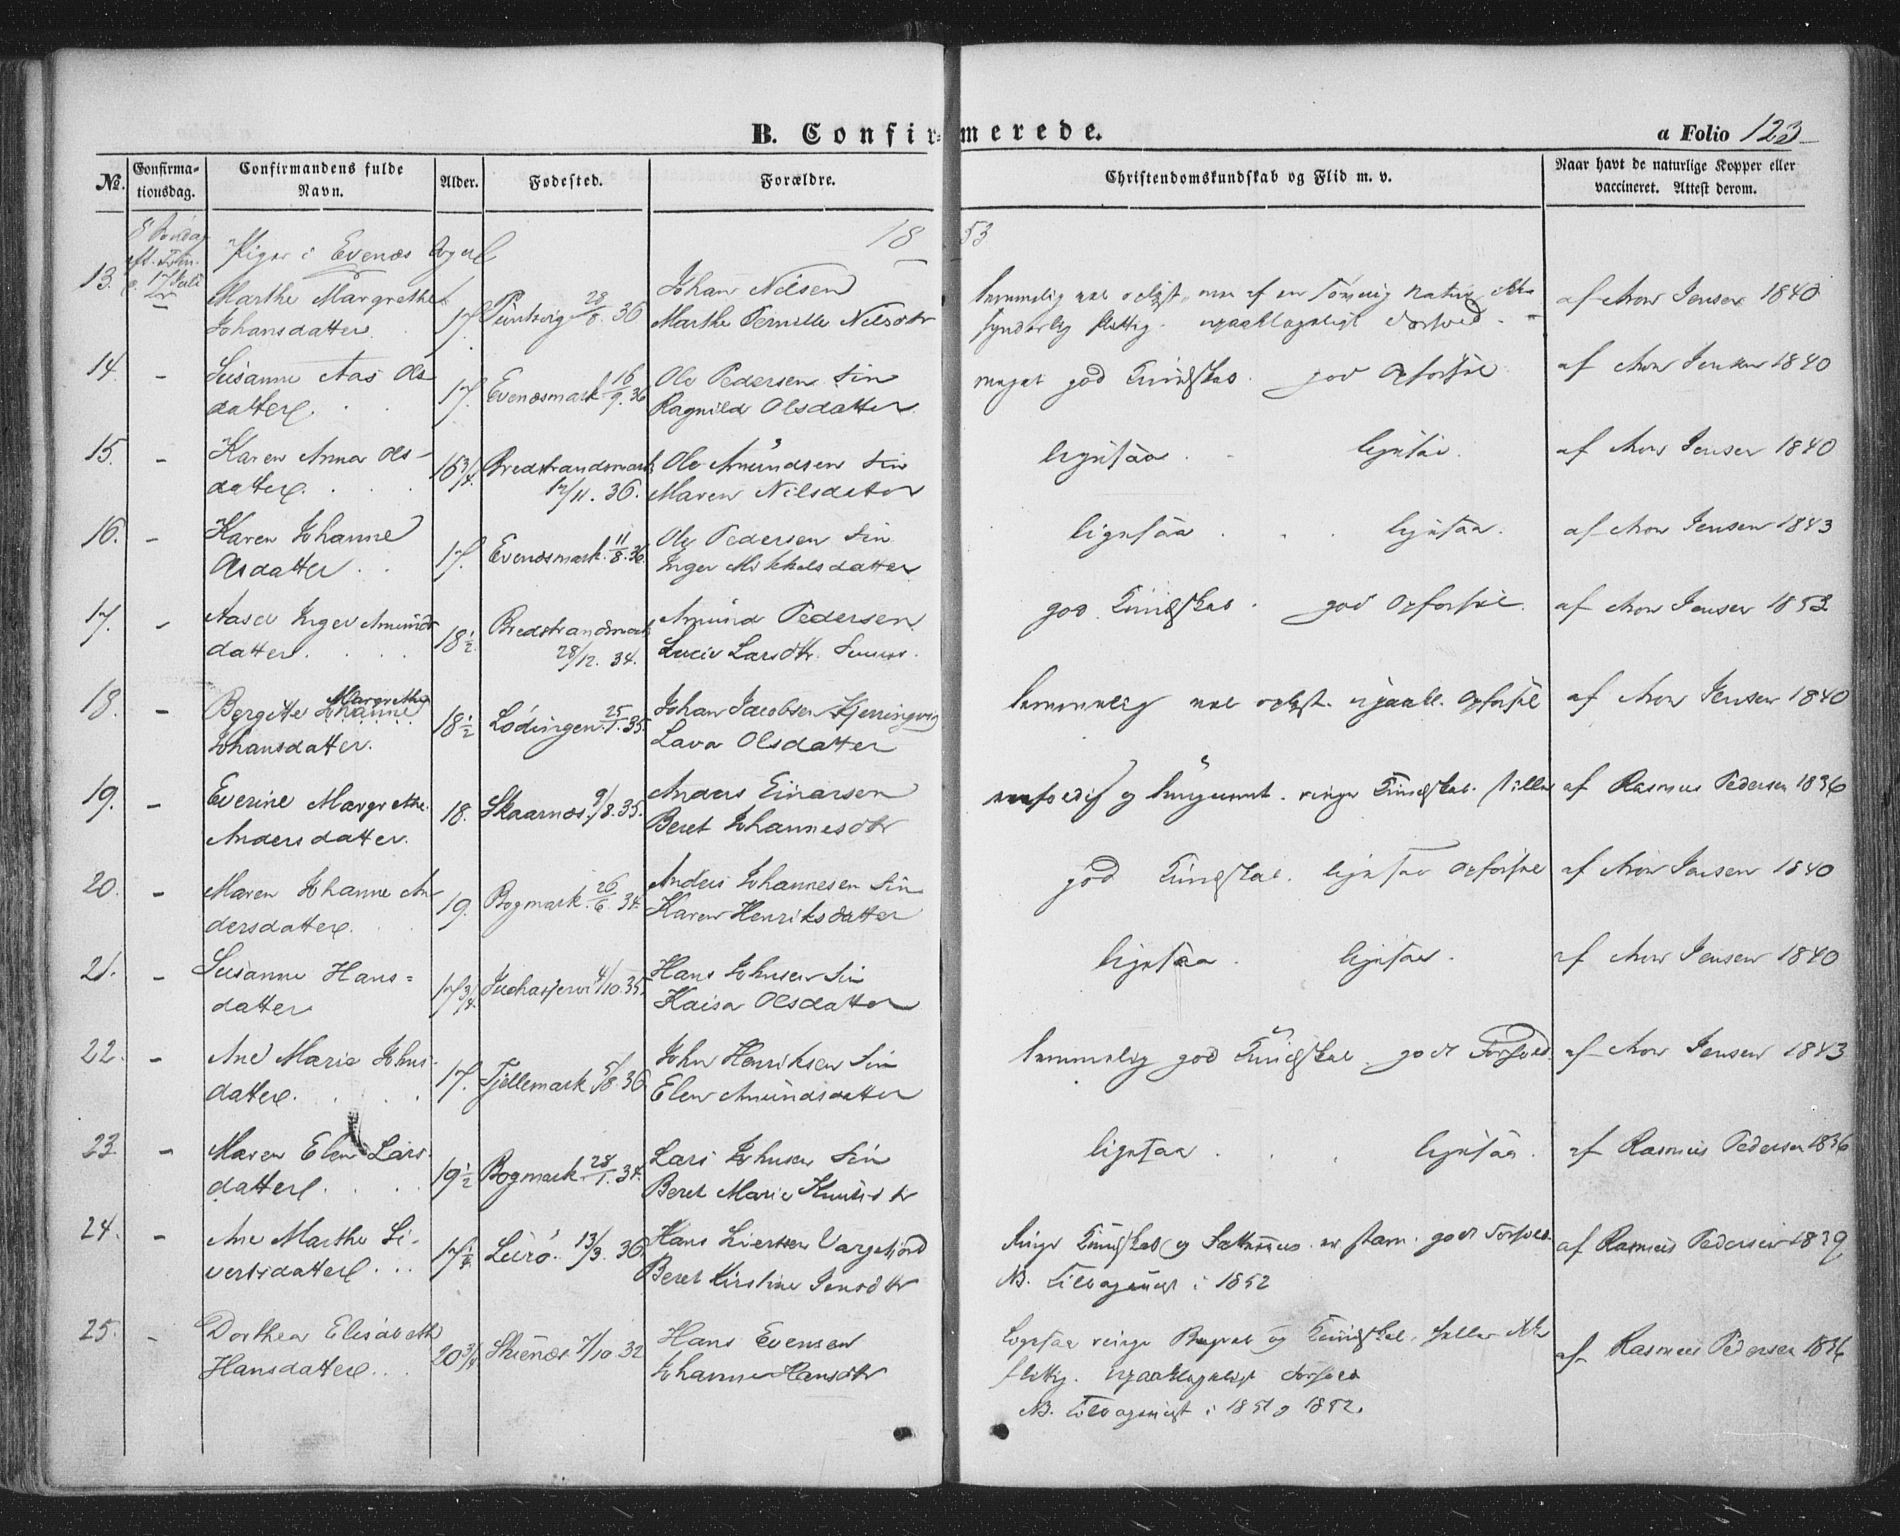 B. Confirmerede. a Folio 123
No. Confirmationsdag. Confirmandens fulde Navn. Alder. Fødested. Forældre. Christendomskundskab og Flid m. v. Naar havt de naturlige Kopper eller vaccineret. Attest derom.
1853
8 Søndag eft. Trin. Piger i Evenæs Sogn
13. Marthe Margrethe Johansdatter 17. 28/8 36 Johan Nilsen Marthe Pernille Nilsdtr af Aron Jensen 1840
14. – Susanne Aas Olsdatter. 17. Evenæsmark 16/9. 36 Ole Pedersen Fin Ragnild Olsdatter. meget god Kundskab. god Opførsel af Aron Jensen 1840
15. – Karen Anna Olsdatter. 16 3/4. Bredstrandsmark 17/11. 36. Ole Amundsen Fin Maren Nilsdatter ligesaa. ligesaa. af Aron Jensen 1840
16. – Karen Johanne Olsdatter 17. Evenæsmark. 11/8. 36. Ole Pedersen Fin Inger Mikkelsdatter ligesaa ligesaa. af Aron Jensen 1843
17. – Inger Amundsdatter. 18 1/2. Bredstrandsmark 28/12. 34. Amund Pedersen Lucie Larsdtr. god Kundskab. god Opførsel. af Aron Jensen 1853
18. – Bergitte Johanne Margrethe Johansdatter. 18 1/2 Lødingen 25/1. 35. Johan Jacobsen Kjerringvig Lava Olsdatter temmelig vel oplyst. Opførsel af Aron Jensen 1840
19. – Everine Margrethe Andersdatter. 18. Skaarnæs. 9/8. 35. Anders Einarsen Beret Johannesdtr ringe Kundskab. stille af Rasmus Pedersen 1836
20. – Maren Johanne Andersdatter. 19. Bogmark. 26/6. 34. Anders Johannesen Fin Karen Henriksdatter god Kundskab. ligesaa Opførsel af Aron Jensen 1840
21. – Susanne Hansdatter 17 3/4. 4/10. 35. Hans Johnsen Fin Kaisa Olsdatter ligesaa. ligesaa. af Aron Jensen 1840
22. – Ane Marie Johnsdatter. 17. Fjellemark 5/8. 36 John Henriksen Fin Elen Amundsdatter temmelig god Kundskab. godt Forhold af Aron Jensen 1843
23. – Maren Elen Larsdatter. 19 1/2 Bogmark 28/1. 34. Lars Johnsen Fin Beret Marie Knudsdtr ligesaa ligesaa. af Rasmus Pedersen 1836
24. – Ane Marthe Sivertsdatter. 17 1/4 13/3. 36 Hans Beret Kirstine Jensdtr Ringe Kundskab og godt Forhold. NB. Tilbagevist i 1852 af Rasmus Pedersen 1839
25. – Dorthea Elisabeth Hansdatter. 20 3/4 7/10. 32 Hans Evensen Johanne Hansdtr Ligesaa ringe Begreb og Kundskab, heller ikke flittig. upaaklageligt Forhold NB. Tilbagevist i 1851 og 1852. af Rasmus Pedersen 1836